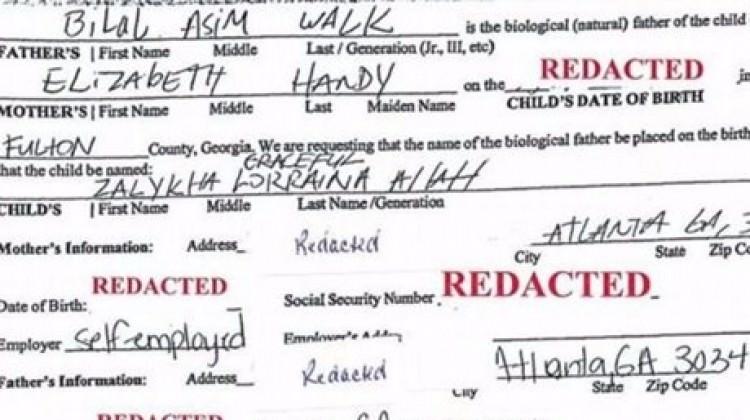 BILAL ASIM WALK is the biological (natural) father of the child
FATHER'S | First Name Middle Last / Generation (Jr., III, etc)
ELIZABETH HANDY on the REDACTED in
MOTHER'S | First Name Middle Last Maiden Name CHILD'S DATE OF BIRTH
FULTON County, Georgia. We are requesting that the name of the biological father be placed on the birth
GRACEFUL
that the child be named:
ZALYKHA LORRAINA ALLAH
CHILD'S | First Name Middle Last Name /Generation
ATLANTA GA, 3
Mother's Information: Address Redacted
City State Zip Co
REDACTED REDACTED
Date of Birth: Social Security Number
Employer self-employed Employer's Addr
Atlanta, GA 3034
Father's Information: Address Redacted
City State Zip Code
REDACTED GA